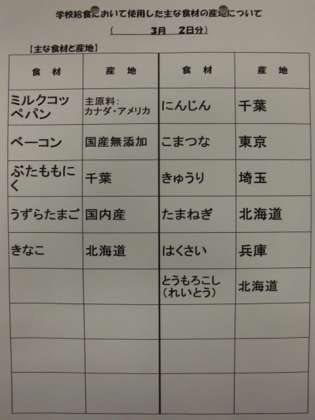 学校給食において使用した主な食材の産地について
( 3月 2日分)
【主な食材と産地】
食 材 産 地 食 材 産 地
ミルクコッペパン 主原料:カナダ・アメリカ にんじん 千葉
ベーコン 国産無添加 こまつな 東京
ぶたももにく 千葉 きゅうり 埼玉
うずらたまご 国内産 たまねぎ 北海道
きなこ 北海道 はくさい 兵庫
とうもろこし(れいとう) 北海道